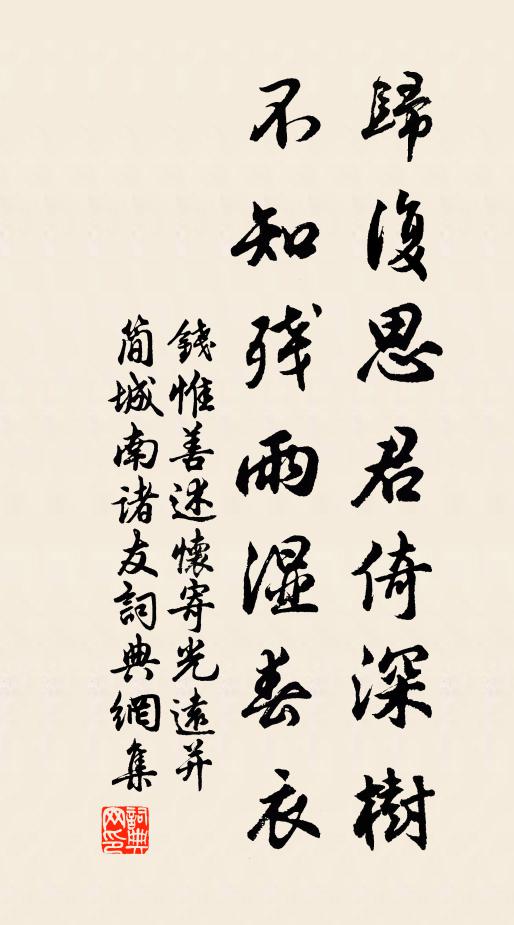 歸復思君倚深樹
不知残雨湿春衣
錢惟善述懷寄光遠并
简城南诸友詞典網集
詞典
网印